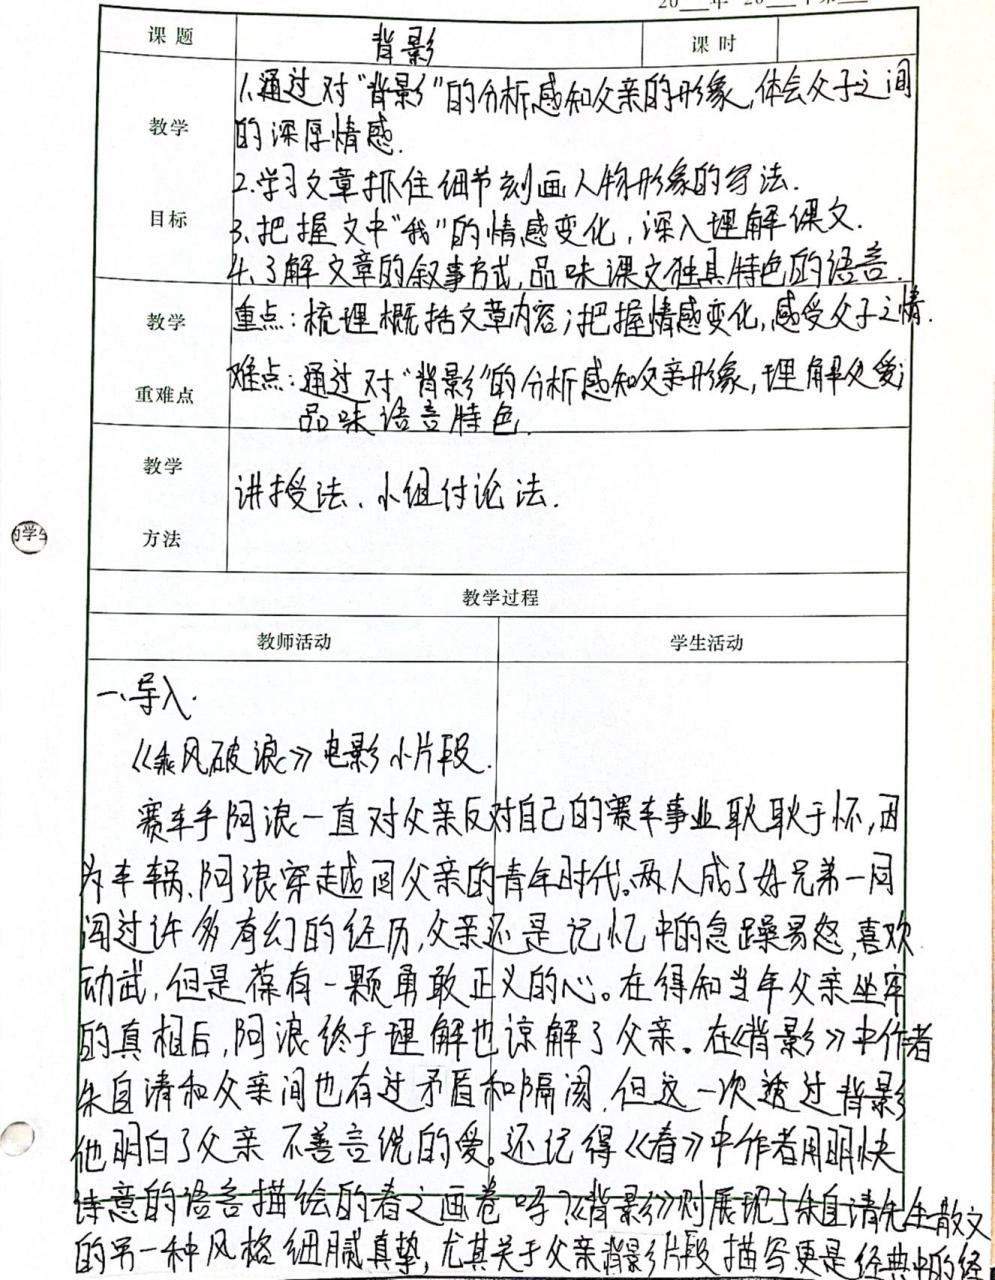 20 年 20 年第
课题 背影 课时
教学
目标
1.通过对“背影”的分析感知父亲的形象,体会父子之间
的深厚情感.
2.学习文章抓住细节刻画人物形象的写法.
3.把握文中“我”的情感变化,深入理解课文.
4.了解文章的叙事方式,品味课文独具特色的语言.
教学
重难点
重点:梳理概括文章内容;把握情感变化,感受父子之情.
难点:通过对“背影”的分析感知父亲形象,理解父爱;
品味语言特色.
教学
方法
讲授法、小组讨论法.
的学生
教学过程
教师活动 学生活动
一、导入.
《乘风破浪》电影小片段.
赛车手阿浪一直对父亲反对自己的赛车事业耿耿于怀,因
为车祸、阿浪穿越回父亲的青年时代。两人成了好兄弟一同
闯过许多有幻的经历,父亲还是记忆中的急躁易怒,喜欢
动武,但是葆有一颗勇敢正义的心。在得知当年父亲坐牢
的真相后,阿浪终于理解也谅解了父亲。在《背影》中作者
朱自清和父亲间也有过矛盾和隔阂,但这一次透过背影
他明白了父亲不善言说的爱。还记得《春》中作者用明快
诗意的语言描绘的春之画卷吗?《背影》则展现了朱自清先生散文
的另一种风格细腻真挚,尤其关于父亲背影片段描写更是经典中的经